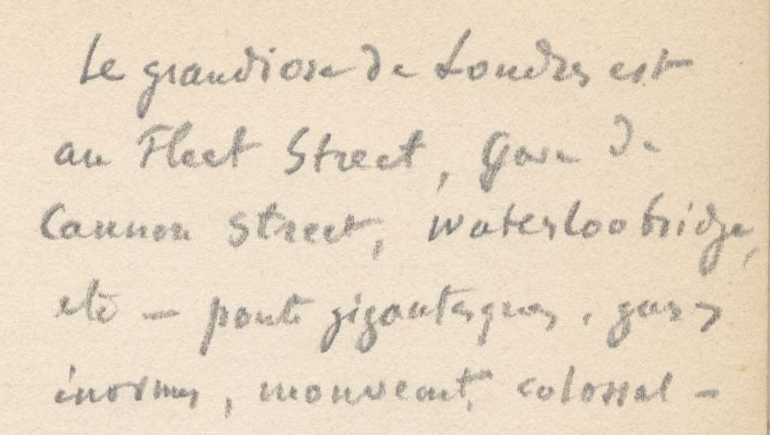 Le grandiose de Londres est
au Fleet Street, Gare de
Cannon Street, Waterloobridge,
etc — ponts gigantesques, gares
énormes, mouvement colossal —